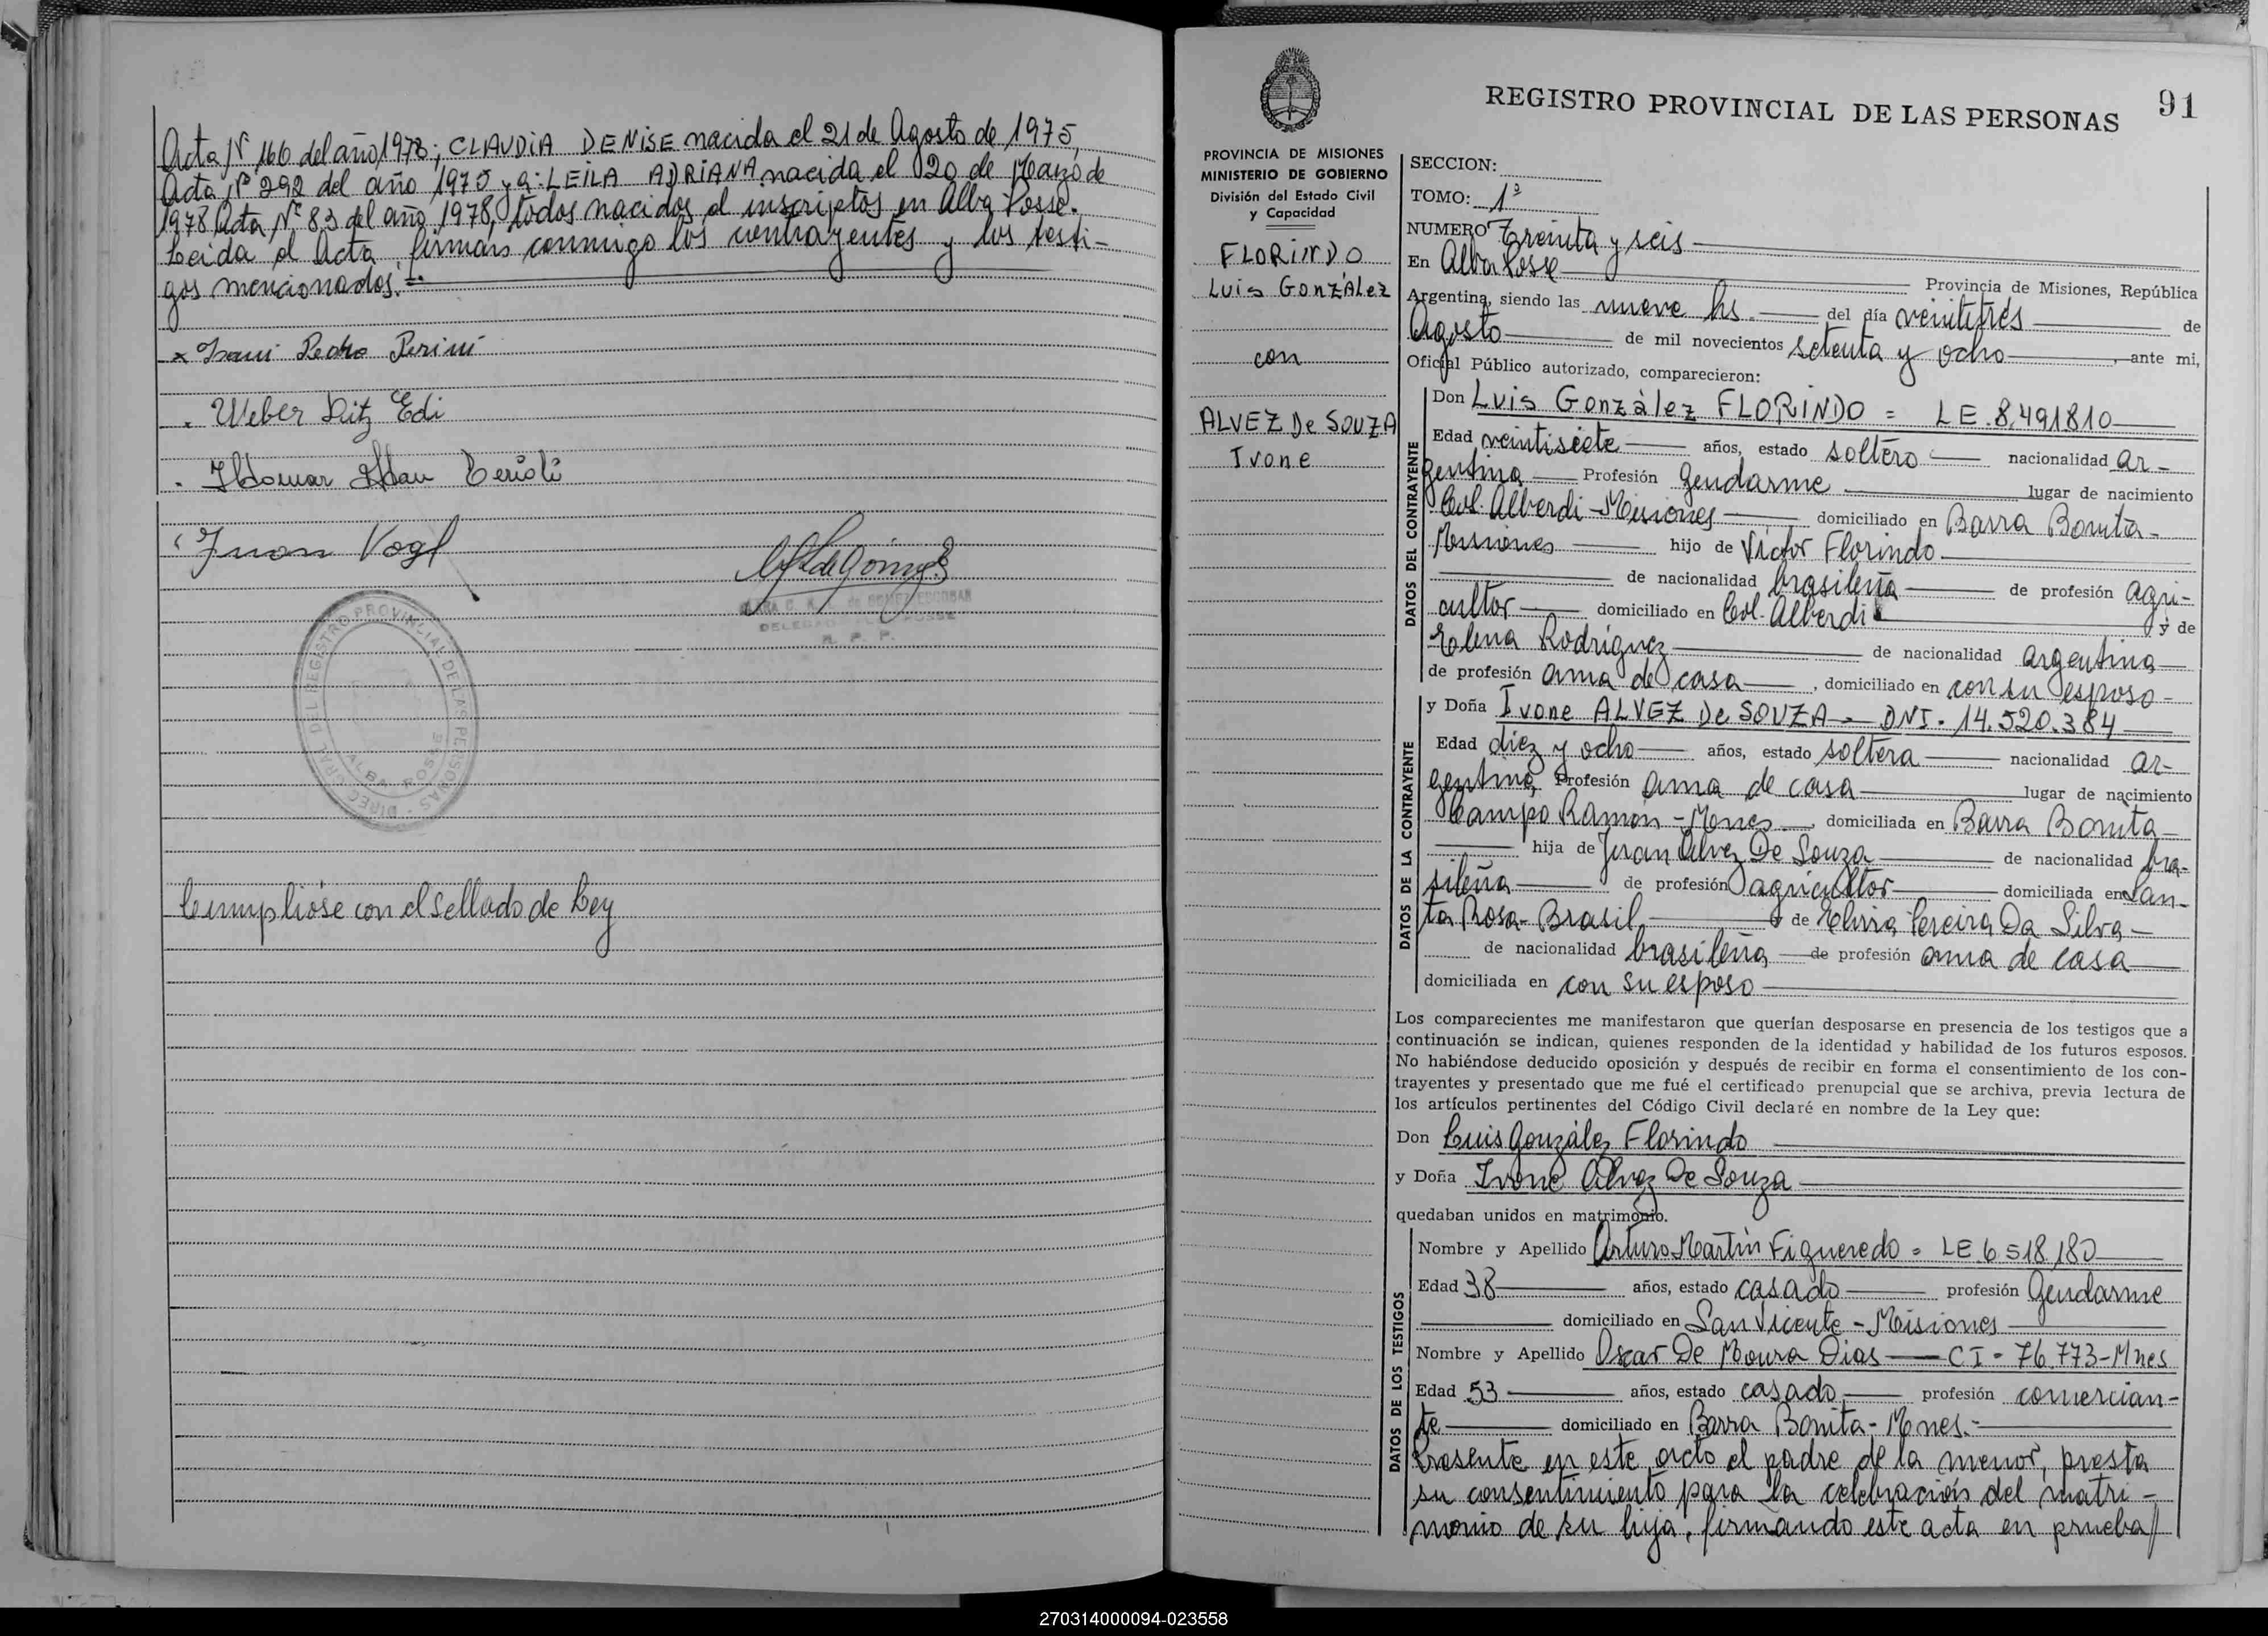 Acta Nº 166 del año 1973; CLAUDIA DENISE nacida el 21 de Agosto de 1975,
Acta Nº 292 del año 1975 y a: LEILA ADRIANA nacida el 20 de Marzo de
1978 Acta Nº 83 del año 1978, todos nacidos é inscriptos en Alba Posse.
Leida el Acta firman conmigo los contrayentes y los testi-
gos mencionados.
Pedro Perini
Weber Ritz Edi
Juan Vogl
DIREC. GRAL DEL REGISTRO PROVINCIAL DE LAS PERSONAS
ALBA POSSE
DE GOMEZ ESCOBAR
POSSE
R. P. P.
Cumplióse con el sellado de Ley
91
REGISTRO PROVINCIAL DE LAS PERSONAS
PROVINCIA DE MISIONES
MINISTERIO DE GOBIERNO
División del Estado Civil
y Capacidad
FLORINDO
Luis GonzÁlez
con
ALVEZ De SOUZA
Ivone
SECCION:
TOMO: 1º
NUMERO Treinta y seis
En Alba Posse
Provincia de Misiones, República
Argentina, siendo las nueve hs. del día veintitrés de
Agosto de mil novecientos setenta y ocho, ante mi,
Oficial Público autorizado, comparecieron:
DATOS DEL CONTRAYENTE
Don Luis Gonzàlez FLORINDO = LE. 8.491810
Edad veintisiete años, estado soltero nacionalidad ar-
gentina Profesión Gendarme lugar de nacimiento
Col. Alberdi - Misiones domiciliado en Barra Bonita-
Misiones hijo de Victor Florindo
de nacionalidad brasileña de profesión agri-
cultor domiciliado en Col. Alberdi y de
Elena Rodriguez de nacionalidad argentina
de profesión ama de casa, domiciliado en con su esposo-
DATOS DE LA CONTRAYENTE
y Doña Ivone ALVEZ De SOUZA - DNI. 14.520.384
Edad diez y ocho años, estado soltera nacionalidad ar-
gentina, Profesión ama de casa lugar de nacimiento
Campo Ramón - Mnes, domiciliada en Barra Bonita
hija de Juan Alvez De Souza de nacionalidad bra-
sileña de profesión agricultor domiciliada en San-
ta Rosa - Brasil y de Elvira Pereira Da Silva
de nacionalidad brasileña de profesión ama de casa
domiciliada en con su esposo
Los comparecientes me manifestaron que querían desposarse en presencia de los testigos que a
continuación se indican, quienes responden de la identidad y habilidad de los futuros esposos.
No habiéndose deducido oposición y después de recibir en forma el consentimiento de los con-
trayentes y presentado que me fué el certificado prenupcial que se archiva, previa lectura de
los artículos pertinentes del Código Civil declaré en nombre de la Ley que:
Don Luis Gonzàlez Florindo
y Doña Ivone Alvez De Souza
quedaban unidos en matrimonio.
DATOS DE LOS TESTIGOS
Nombre y Apellido Arturo Martín Figueredo = LE 6.518.180
Edad 38 años, estado casado profesión Gendarme
domiciliado en San Vicente - Misiones
Nombre y Apellido Oscar De Moura Dias CI - 76.773-Mnes
Edad 53 años, estado casado profesión comercian-
te domiciliado en Barra Bonita - Mnes.-
Presente en este acto el padre de la menor, presta
su consentimiento para la celebración del matri-
monio de su hija, firmando este acta en prueba//
270314000094-023558